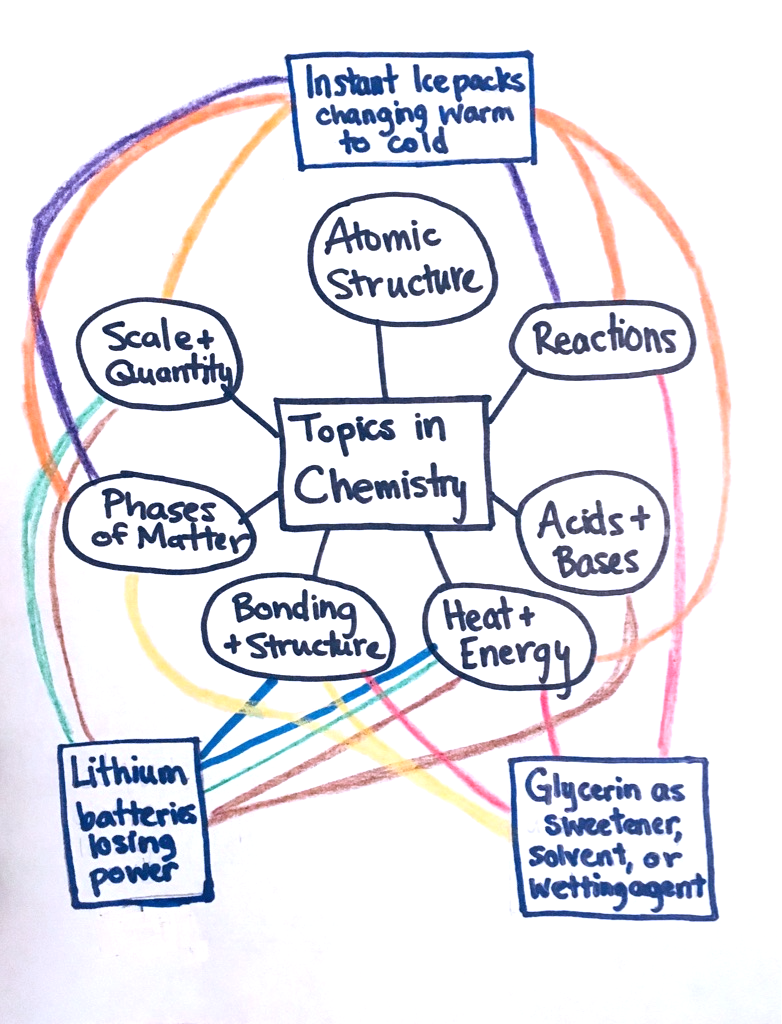 Instant Icepacks
changing warm
to cold
Atomic
Structure
Scale +
Quantity
Reactions
Topics in
Chemistry
Phases
of Matter
Acids +
Bases
Bonding
+ Structure
Heat +
Energy
Lithium
batteries
losing
power
Glycerin as
sweetener,
solvent, or
wetting agent